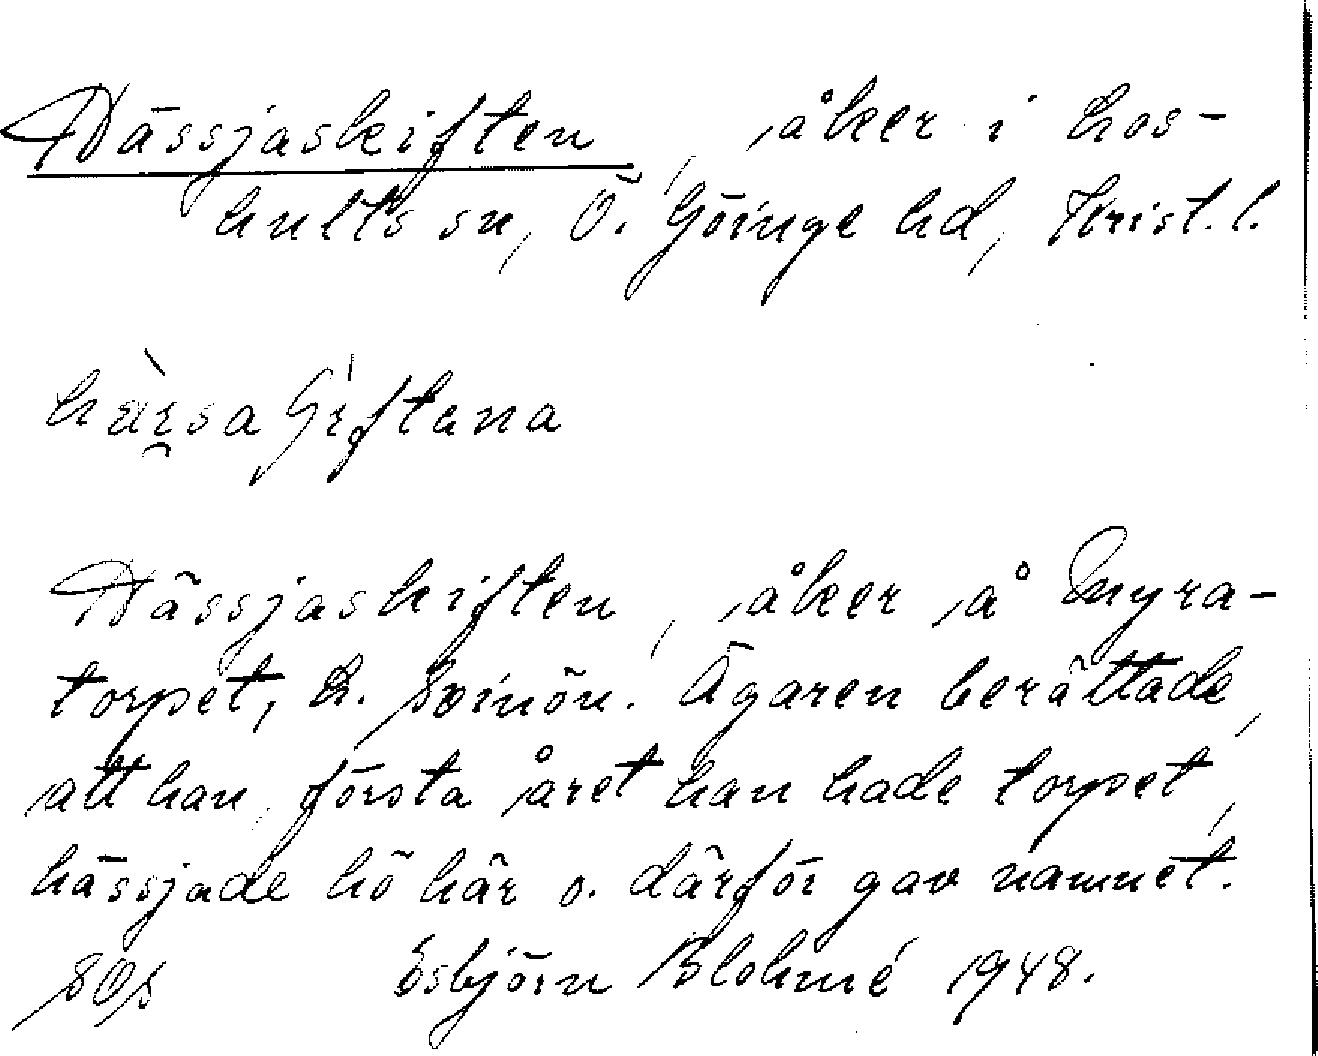 Hässjaskiften, åker i Los-
hults sn, Ö. Göinge hd, Krist. l.
Hässjaskiften, åker å Myra-
torpet, L. Svinön. Ägaren berättade,
att han, första året han hade torpet,
hässjade hö här o. därför gav namnet.
Esbjörn Blohmé 1948.